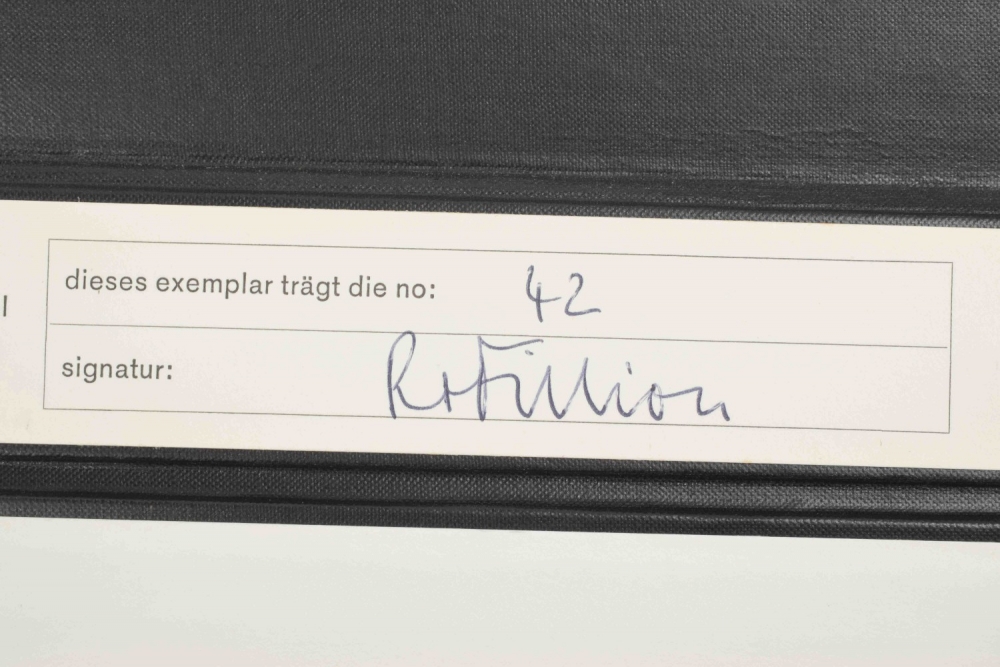 dieses exemplar trägt die no: 42
signatur: R. Fillion